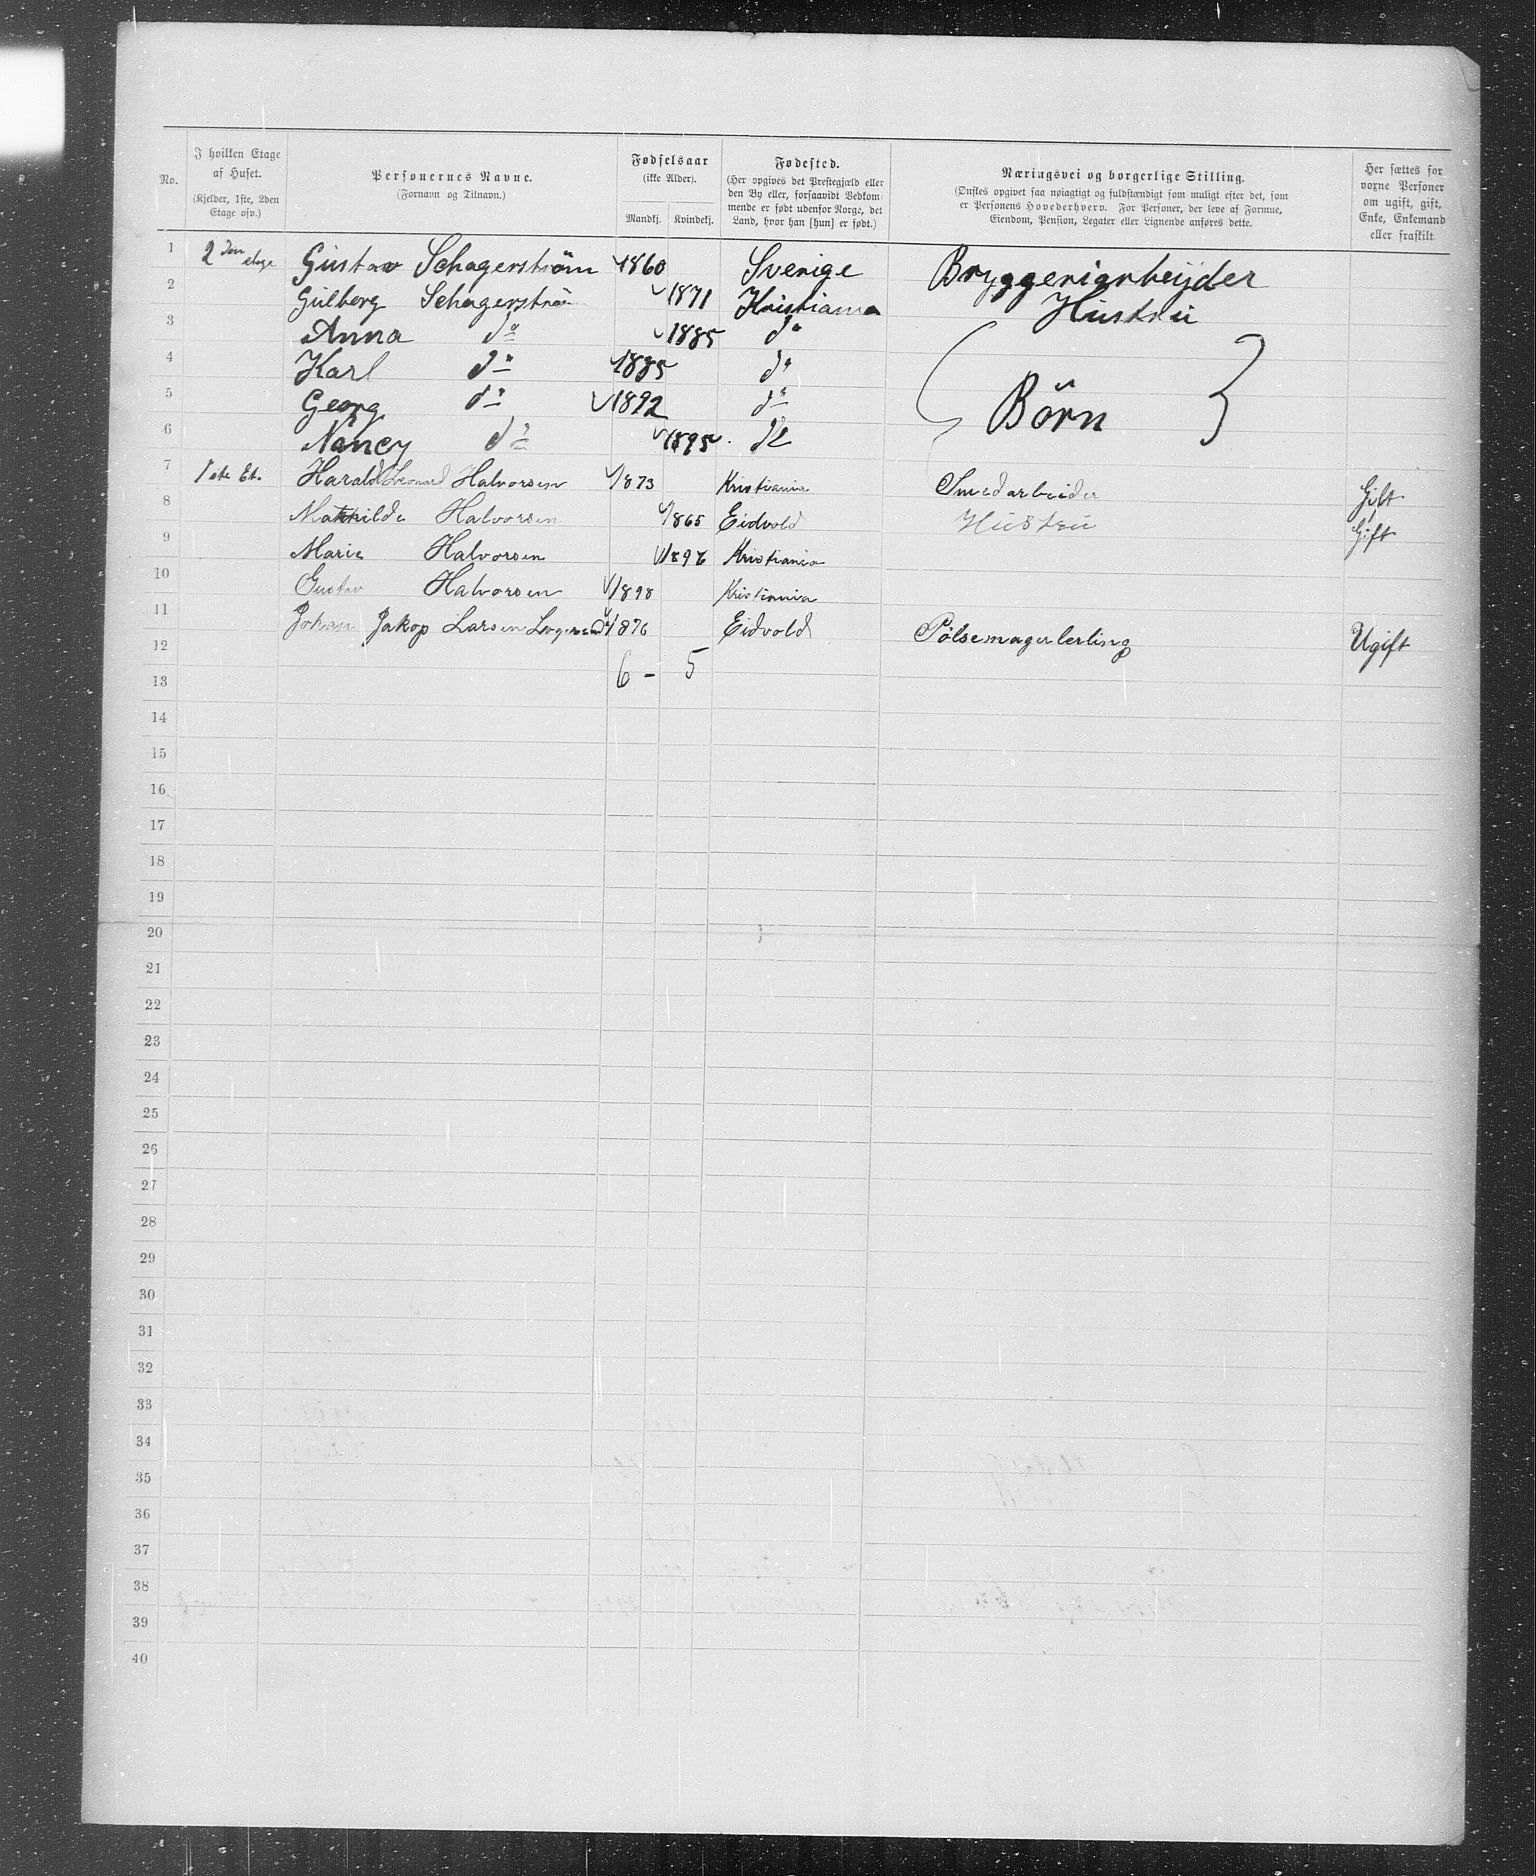 No. I hvilken Etage af Huset. (Kjelder, 1ste, 2den Etage osv.) Personernes Navne. (Fornavn og Tilnavn.) Fødselsaar (ikke Alder). Mandkj. Kvindekj. Fødested. (Her opgives det Prestegjæld eller den By eller, forsaavidt Vedkommende er født udenfor Norge, det Land, hvor han [hun] er født.) Næringsvei og borgerlige Stilling. (Ønskes opgivet saa nøiagtigt og fuldstændigt som muligt efter det, som er Personens Hovederhverv. For Personer, der leve af Formue, Eiendom, Pension, Legater eller Lignende anføres dette. Her sættes for voxne Personer om ugift, gift, Enke, Enkemand eller fraskilt.
1 2den etage Gustav Schagerström 1860 Sverige Bryggeriarbeijder
2 Gülborg Schagerström 1871 Kristiania Hustrü
3 Anna do 1885 do
4 Karl do 1885 do
5 Georg do 1892 do Börn
6 Nancy do 1895 do
7 1ste Et. Harald Leonard Halvorsen 1873 Kristiania Smedarbeider Gift
8 Mathilde Halvorsen 1865 Eidvold Hustru Gift
9 Marie Halvorsen 1896 Kristiania
10 Gustav Halvorsen 1898 Kristiania
11 Johan Jakop Larsen 1876 Eidvold Pølsemagerlerling Ugift
12 6 - 5
13
14
15
16
17
18
19
20
21
22
23
24
25
26
27
28
29
30
31
32
33
34
35
36
37
38
39
40